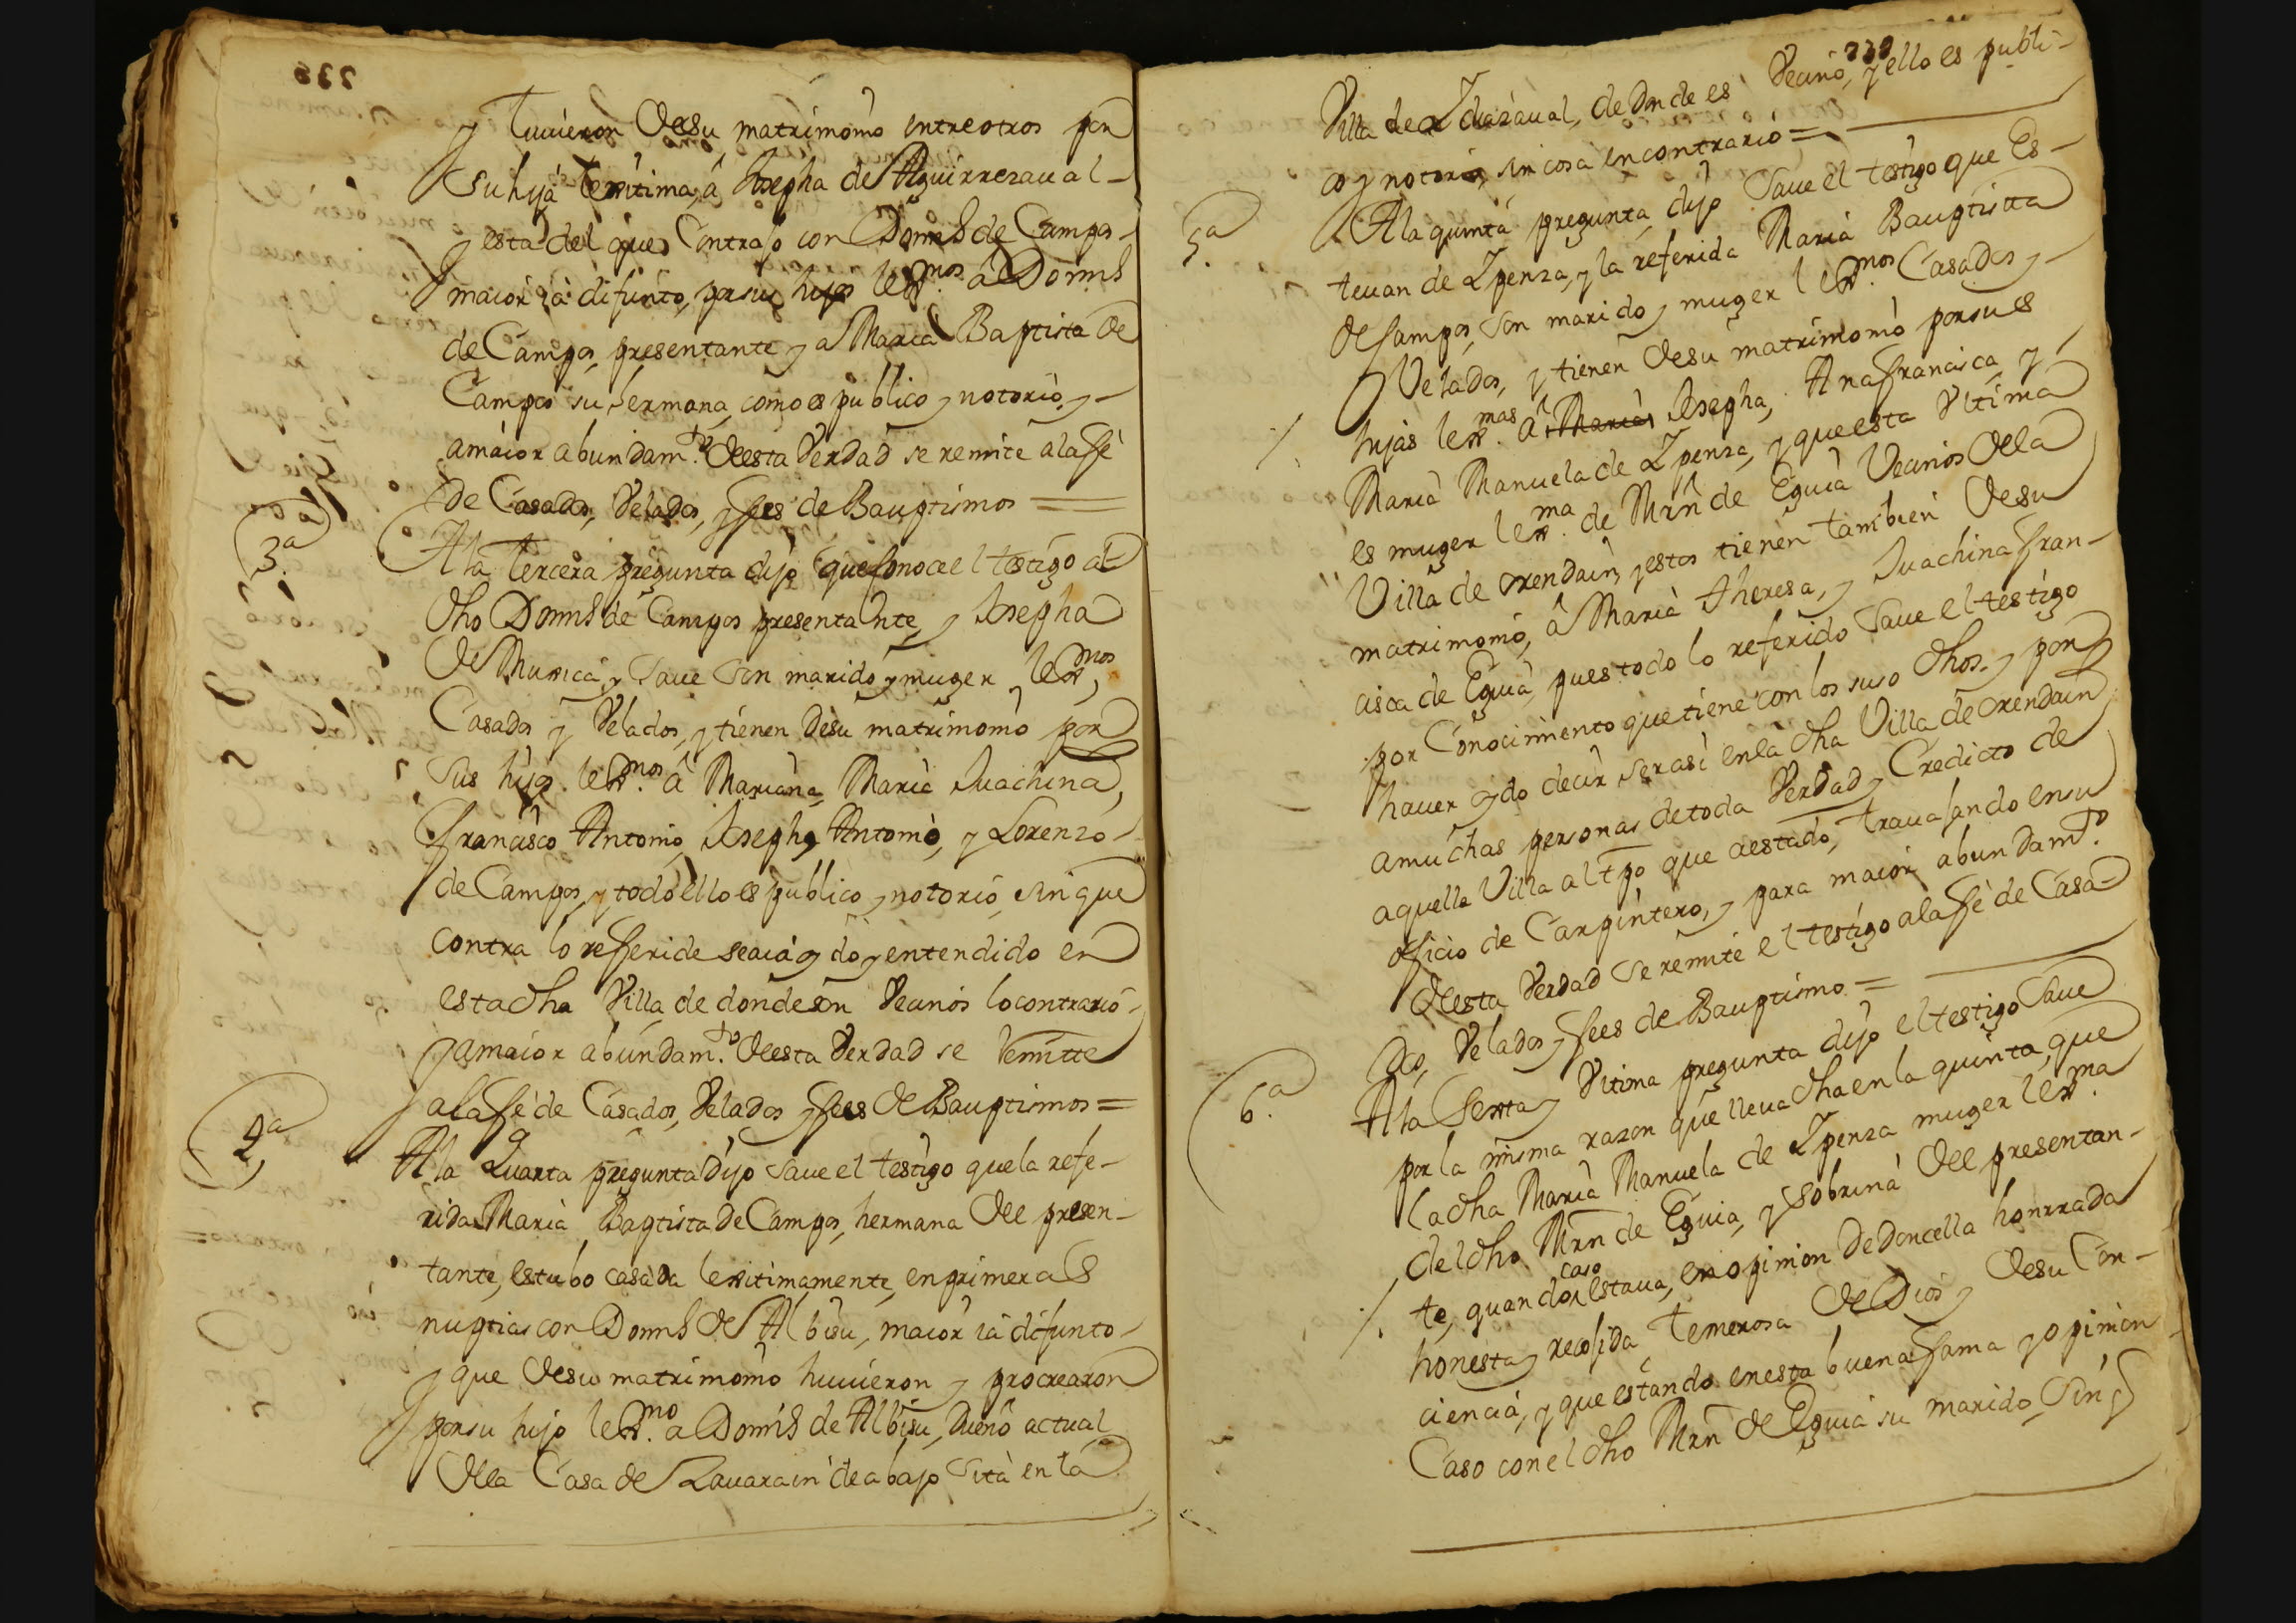 y tuuieron de su matrimonio entre otros por
su hija lexitima, â Josepha de Aguirrezaual
y esta del que Contrajo con Doms de Campos
maior ia difunto, por sus hijos lexmos. â Doms
de Campos, presentante y a Maria Baptista de
Campos su hermana, como es publico y notorio, y
amaior abundamto. de esta Verdad se remite ala ffe
de Casados, Velados, y ffes de Bauptismos =
3.a
Ala tercera pregunta dijo que Conoce el testigo al
dho Doms de Campos presentante, y Josepha
de Mun, y Saue son marido y muger lexmos,
Casados y Velados, y tienen de su matrimonio por
sus hijos lexmos. â Mariana, Maria Juachina,
Francisco Antonio, Joseph Antonio, y Lorenzo
de Campos, y todo ello es publico y notorio, sin que
contra lo refferido se aia oydo y entendido en
esta dha Villa de donde son Vecinos lo contrario
y amaior abundamto. de esta Verdad se Remitte
ala ffe de Casados, Velados y ffees de Bauptismos =
4a
Ala Quarta pregunta Dijo saue el testigo que la refe-
rida Maria Baptista de Campos, hermana del presen-
tante, estubo casada lexitimamente, en primeras
nuptias con Doms de Albisu, maior ia difunto
y que de su matrimonio huuieron y procrearon
por su hijo lexmo. a Doms de Albisu, Dueño actual
de la Casa de Lauarain de abajo sita en la
239
Villa de Ydiazaual, de donde es Vecino, y ello es publi-
co y notorio, sin cosa en contrario =
5.a
Ala quinta pregunta, dijo Saue el testigo que Es-
teuan de Ypenza, y la referida Maria Bauptistta
de Campos, son marido y muger lexmos. Casados y
Velados, y tienen de su matrimonio por sus
hijas lexmas. â Maria Josepha, Ana francisca, y
Maria Manuela de Ypenza, y que esta Vltima
es muger lexma. de Mrn de Eguia Vecinos de la
Villa de orendain, y estos tienen tambien de su
matrimonio, â Maria theresa, y Juachina fran-
cisca de Eguia, pues todo lo referido Saue el testigo
por Conocimiento que tiene con los suso dhos. y por
hauer oydo decir ser asi en la dha Villa de orendain
amuchas personas de toda Verdad y Credicto de
aquella Villa al tpo que a estado, trauajando en su
officio de Carpintero, y para maior abundamto.
de esta Verdad se remite el testigo ala ffe de Casa-
dos, Velados y ffees de Bauptismo =
6.a
Ala Sexta y Vltima pregunta dijo el testigo Saue
por la misma razon que lleua dha en la quinta, que
la dha Maria Manuela de Ypenza muger lexma.
del dho Mrn de Eguia, y sobrina del presentan-
caso
te, quando estaua, en opinion de Doncella honrrada
honesta y recojida, temerosa de Dios y de su Con-
ciencia, y que estando en esta buena fama y opinion
Caso con el dho Mrn de Eguia su marido, Sin